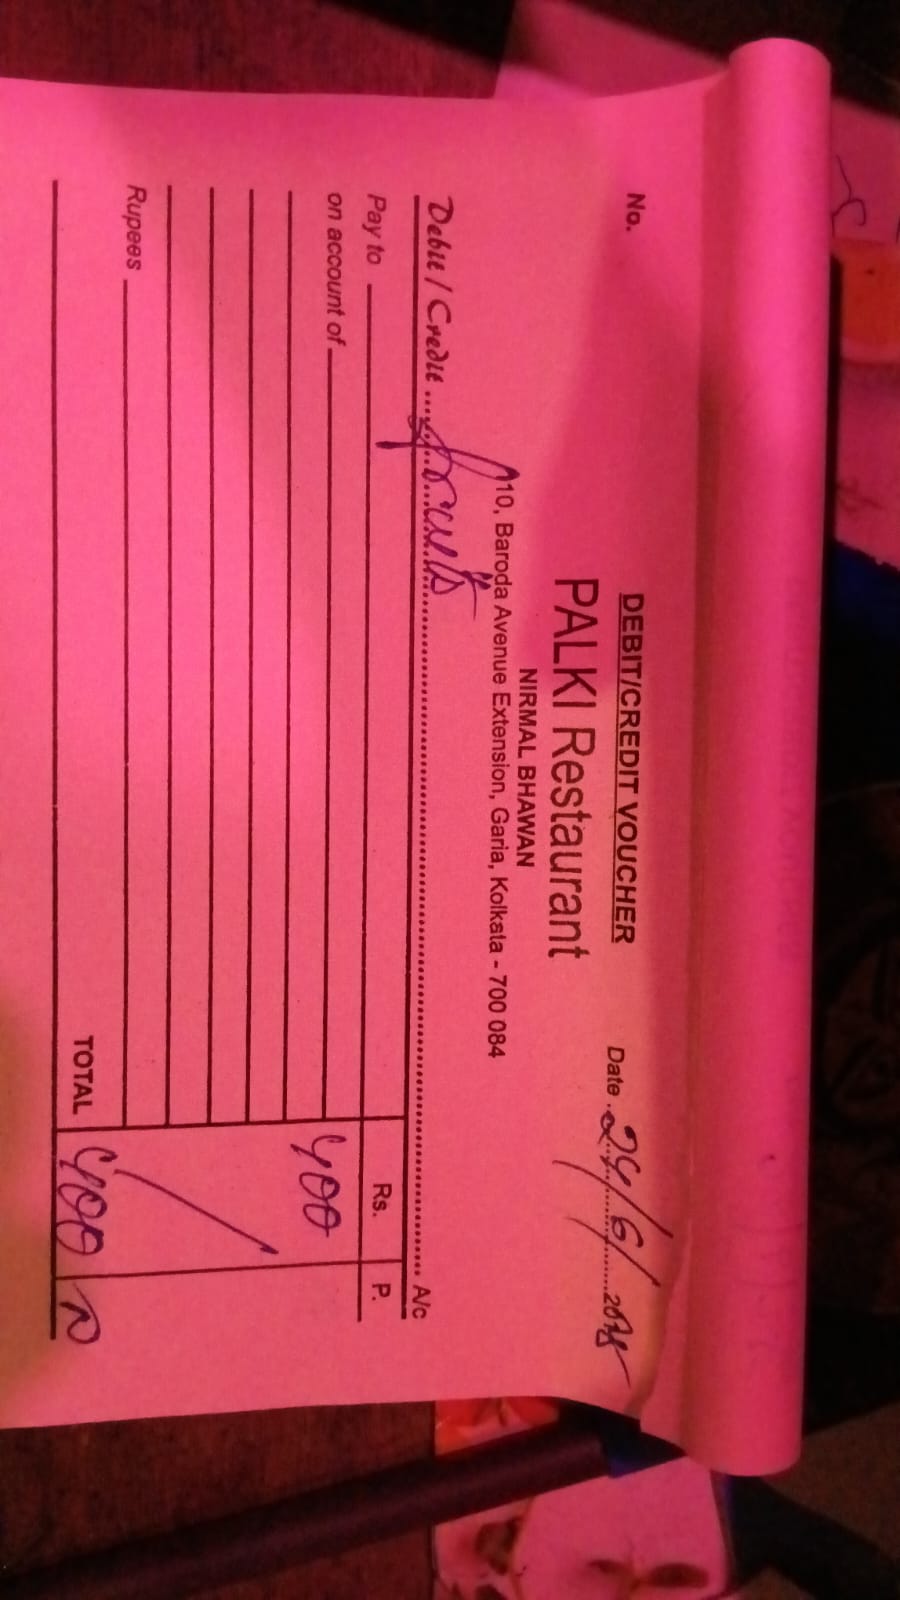 No.
DEBIT/CREDIT VOUCHER
Date 24/6/
PALKI Restaurant
NIRMAL BHAWAN
10, Baroda Avenue Extension, Garia, Kolkata - 700 084
Debit / Credit A/c
Pay to Rs. P.
on account of 400
Rupees
TOTAL 400